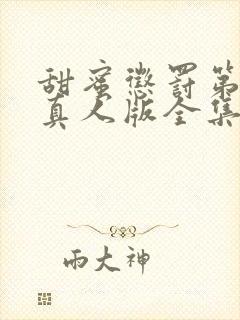 甜蜜懲罰第
真人版全集
雨大神